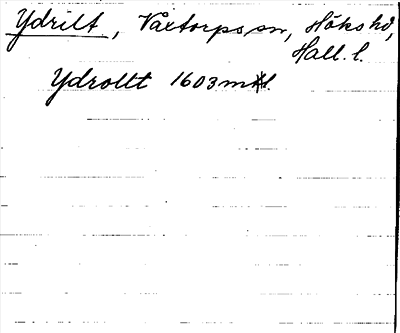 Ydrilt, Våxtorps sn, Höks hd,
Hall. l.
Ydrollt 1603 mtl.